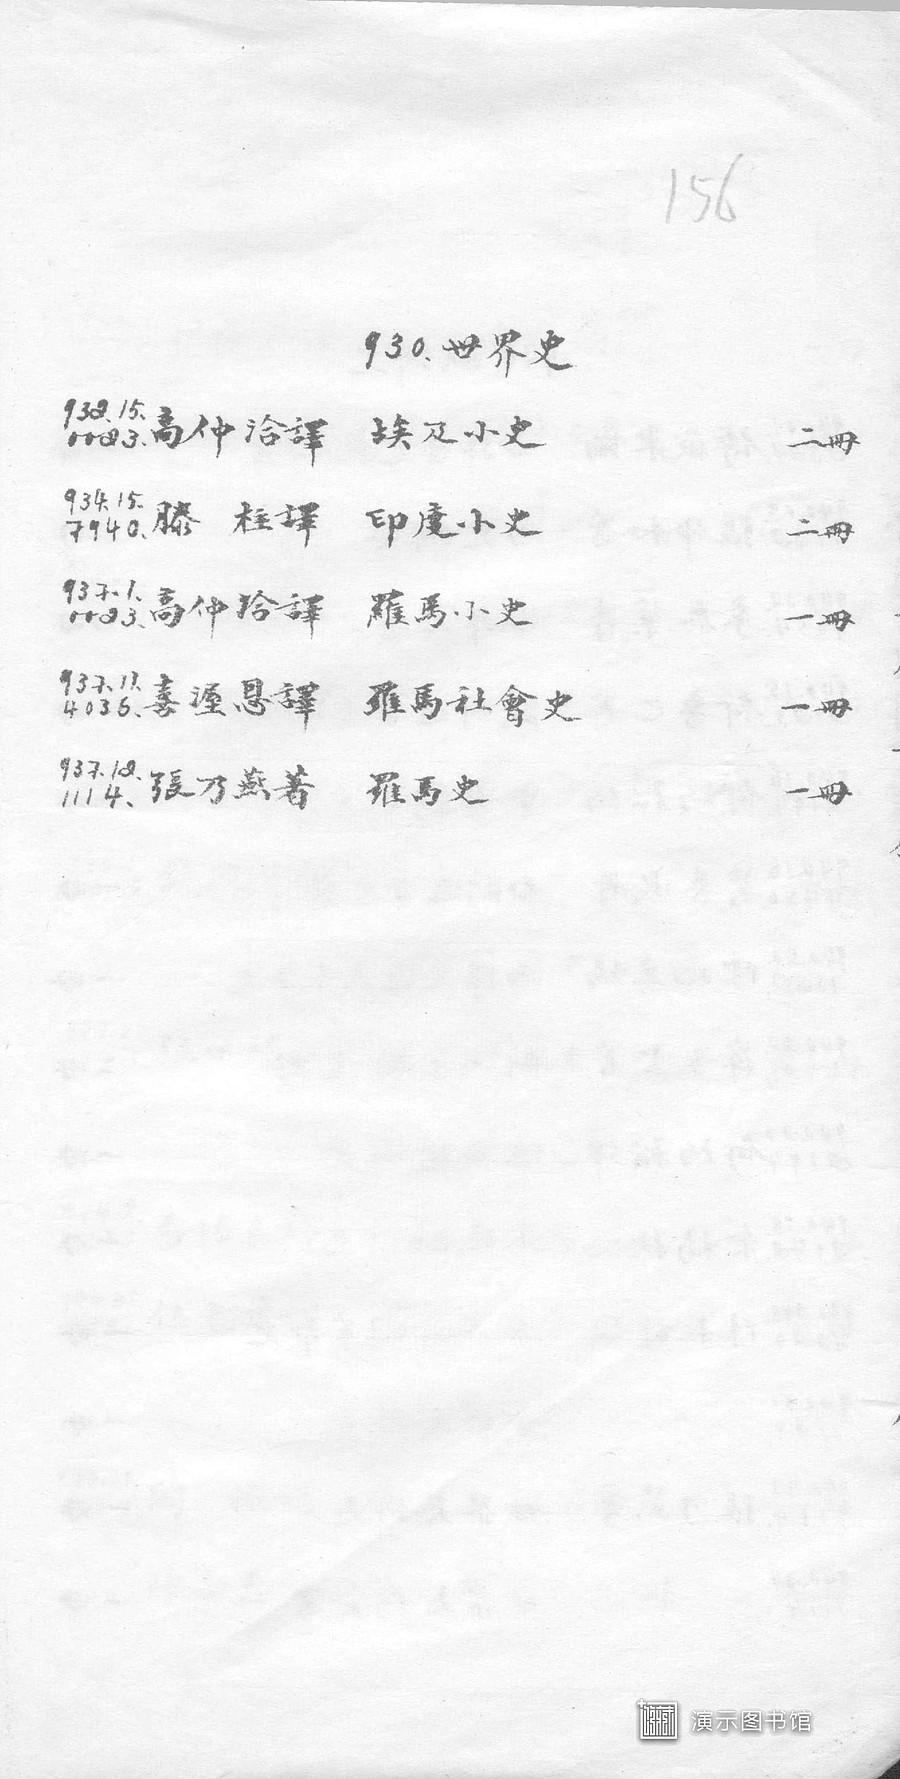 156
930. 世界史
932.15.
0023. 高仲洽譯 埃及小史 二冊
934.15.
7940. 滕柱譯 印度小史 二冊
937.1.
0023. 高仲洽譯 羅馬小史 一冊
937.11.
4036. 喜渥恩譯 羅馬社會史 一冊
937.12.
1114. 張乃燕著 羅馬史 一冊
演示图书馆